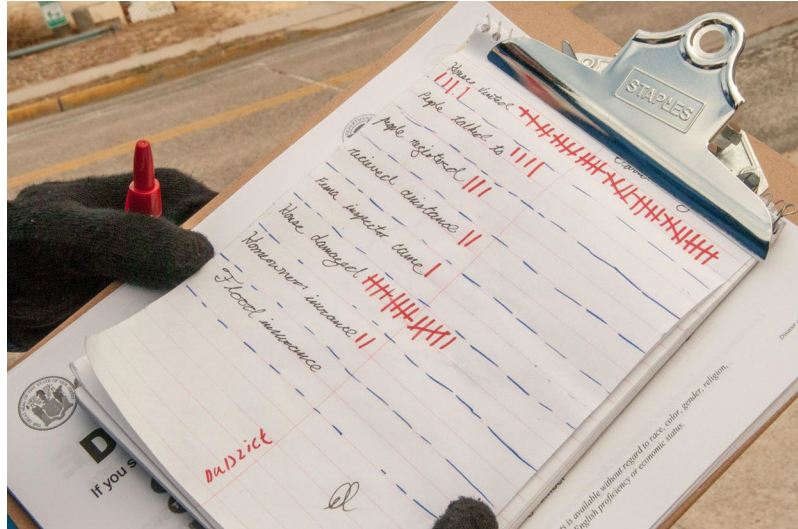 STAPLES
House visited
People talked to
people registered
recieved assistance
Fema inspector came
House damaged
Homeowners insurance
Flood insurance
District
D
If you s
s is available without regard to race, color, gender, religion,
English proficiency or economic status.